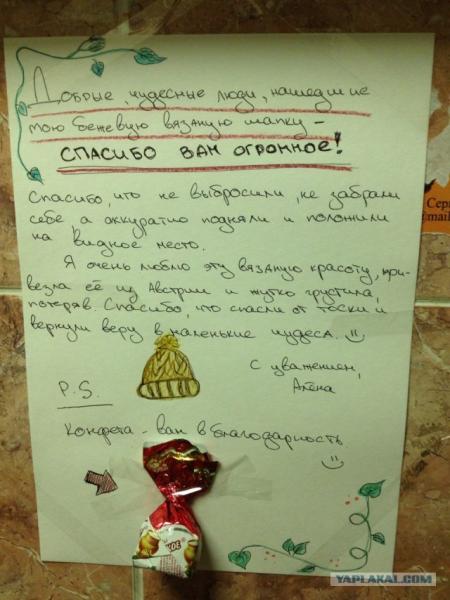 Добрые, чудесные люди, нашедшие
мою бежевую вязаную шапку –
СПАСИБО ВАМ ОГРОМНОЕ!
Спасибо, что не выбросили, не забрали
себе а аккуратно подняли и положили
на видное место.
Я очень люблю эту вязаную красоту, при-
везла её из Австрии и жутко грустила,
потеряв. Спасибо, что спасли от тоски и
вернули веру в маленькие чудеса.
С уважением,
Алёна
P.S.
Конфета – вам в благодарность
Серг
@mail
YAPLAKAL.COM